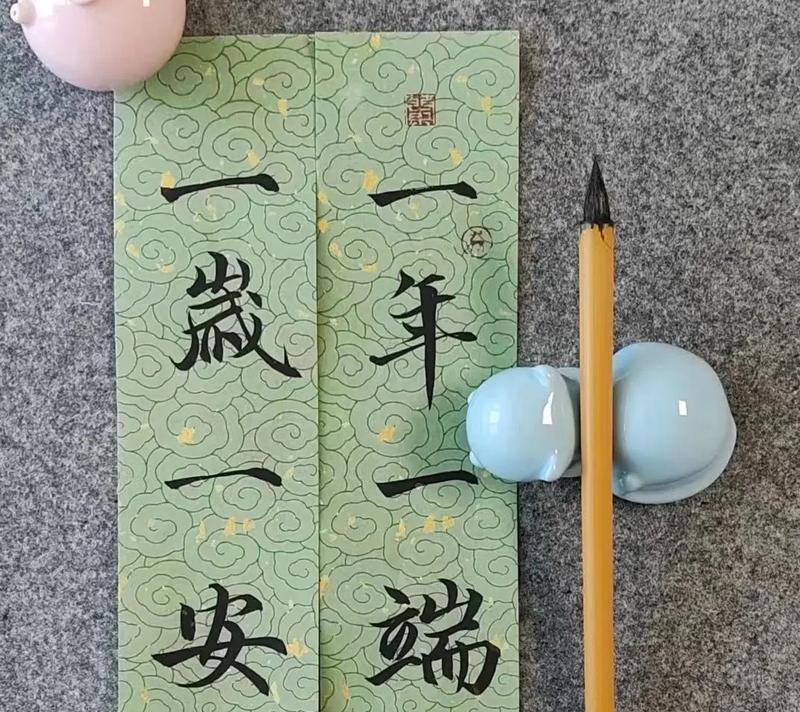 一年一端
一歲一安